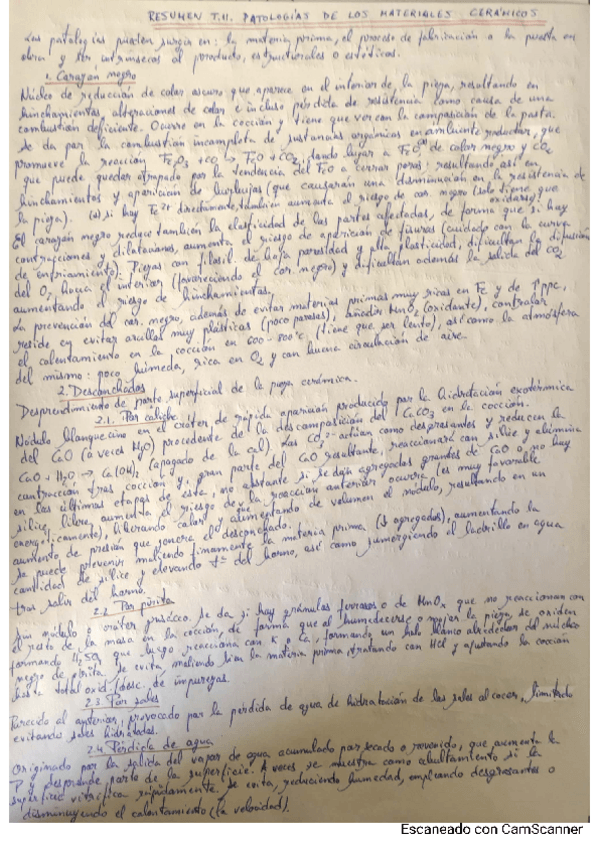 RESUMEN T.11. PATOLOGÍAS DE LOS MATERIALES CERÁMICOS
Las patologías pueden surgir en: la materia prima, el proceso de fabricación o la puesta en
obra y ser intrínsecos al producto, estructurales o estéticos.
1. Corazón negro
Núcleo de reducción de color oscuro que aparece en el interior de la pieza, resultando en
hinchamientos, alteraciones de color e incluso pérdida de resistencia como causa de una
combustión deficiente. Ocurre en la cocción y tiene que ver con la composición de la pasta.
Se da por la combustión incompleta de sustancias orgánicas en ambiente reductor, que
promueve la reacción Fe2O3 + CO → FeO + CO2, dando lugar a FeO de color negro y CO2
que puede quedar atrapado por la tendencia del FeO a cerrar poros: resultando así en
hinchamientos y aparición de burbujas (que causarán una disminución en la resistencia de
la pieza). (*) si hay Fe2+ directamente, también aumenta el riesgo de cor. negro (solo tiene que
oxidarse)
El corazón negro reduce también la elasticidad de las partes afectadas, de forma que si hay
contracciones y dilataciones, aumenta el riesgo de aparición de fisuras (cuidado con la curva
de enfriamiento). Piezas con filosil. de baja porosidad y alta plasticidad, dificultan la difusión
del O2 hacia el interior (favoreciendo el cor. negro) y dificultan además la salida del CO2
aumentando el riesgo de hinchamientos.
La prevención del cor. negro, además de evitar materias primas muy ricas en Fe y de ↑ppc,
reside en evitar arcillas muy plásticas (poco porosas), añadir MnO2 (oxidante), controlar
el calentamiento en la cocción en 600-800°C (tiene que ser lento), así como la atmósfera
del mismo: poco húmeda, rica en O2 y con buena circulación de aire.
2. Desconchados
Desprendimiento de parte superficial de la pieza cerámica.
2.1. Por caliche
Nódulo blanquecino en el cráter de rápida aparición producido por la hidratación exotérmica
del CaO (a veces H2O) procedente de la descomposición del CaCO3 en la cocción.
CaO + H2O → Ca(OH)2 (apagado de la cal). Las CO3 2- actúan como desgrasantes y reducen la
contracción tras cocción y gran parte del CaO resultante, reaccionará con sílice y alúmina
en las últimas etapas de esta, no obstante si se dan agregados grandes de CaO o no hay
sílice libre, aumenta el riesgo de que la reacción anterior ocurra (es muy favorable
energéticamente), liberando calor y aumentando de volumen el nódulo, resultando en un
aumento de presión que genera el desconchado.
Se puede prevenir moliendo finamente la materia prima (↓ agregados), aumentando la
cantidad de sílice y elevando tª del horno, así como sumergiendo el ladrillo en agua
tras salir del horno.
2.2 Por pirita
Sin nódulo o cráter grisáceo. Se da si hay gránulos ferrosos o de MnOx que no reaccionan con
el resto de la masa en la cocción, de forma que al humedecerse o mojar la pieza, se oxiden
formando H2SO4 que luego reacciona con K o Ca, formando un halo blanco alrededor del núcleo
negro de pirita. Se evita moliendo bien la materia prima, tratando con HCl y ajustando la cocción
hasta total oxid./desc. de impurezas.
2.3 Por sales
Parecido al anterior, provocado por la pérdida de agua de hidratación de las sales al cocer, limitado
evitando sales hidratadas.
2.4 Pérdida de agua
Originado por la salida del vapor de agua acumulado por secado o revenido, que aumenta la
P y desprende parte de la superficie. A veces se muestra como abultamiento si la
superficie vitrifica rápidamente. Se evita, reduciendo humedad, empleando desgrasantes o
disminuyendo el calentamiento (la velocidad).
Escaneado con CamScanner